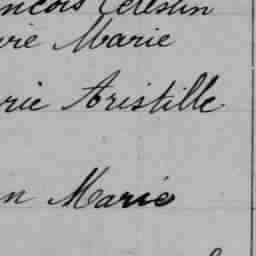 ncois Celestin
vre Marie
rie Aristille
n Marie